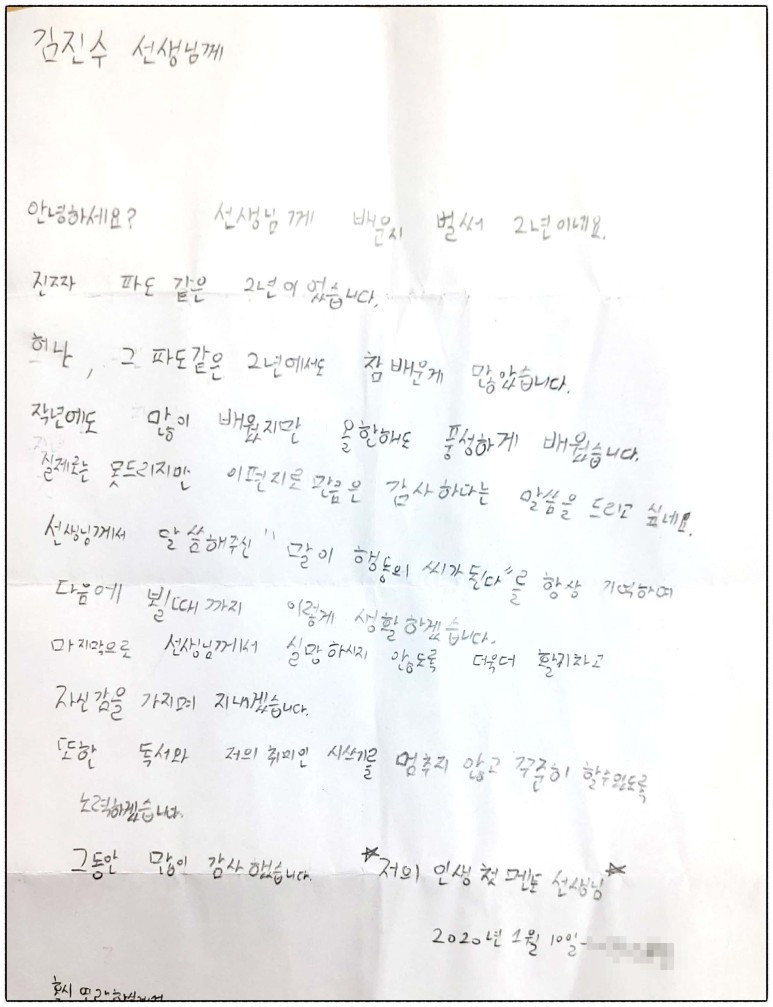 김진수 선생님께
안녕하세요? 선생님께 배운지 벌써 2년이네요.
진짜 파도 같은 2년이었습니다.
허나, 그 파도같은 2년에서도 참 배운게 많았습니다.
작년에도 많이 배웠지만 올한해도 풍성하게 배웠습니다.
실제로는 못드리지만 이편지로 만큼은 감사하다는 말씀을 드리고 싶네요.
선생님께서 말씀해주신 "말이 행동의 씨가된다"를 항상 기억하여
다음에 뵐때까지 이렇게 생활하겠습니다.
마지막으로 선생님께서 실망하시지 않도록 더욱더 활기차고
자신감을 가지며 지내겠습니다.
또한 독서와 저의 취미인 시쓰기를 멈추지 않고 꾸준히 할수있도록
노력하겠습니다.
그동안 많이 감사했습니다. *저의 인생 첫 멘토 선생님*
2020년 1월 10일-
혹시